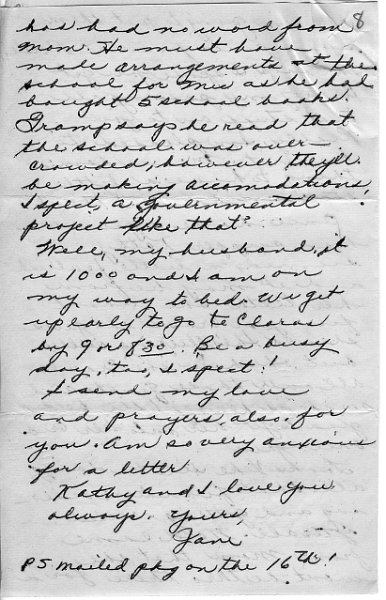 8
has had no word from
mom. He must have
made arrangements at the
school for me as he had
bought 5 school books.
Gramp says he read that
the school was over-
crowded, however they'll
be making accomodations,
I spect, a governmental
project like that?
Well, my husband, it
is 1000 and I am on
my way to bed. We get
up early to go to Claras
by 9 or 830. Be a busy
day, too, I spect!
I send my love
and prayers, also, for
you. Am so very anxious
for a letter
Kathy and I love you
always. Yours,
Jane
PS mailed pkg on the 16th!